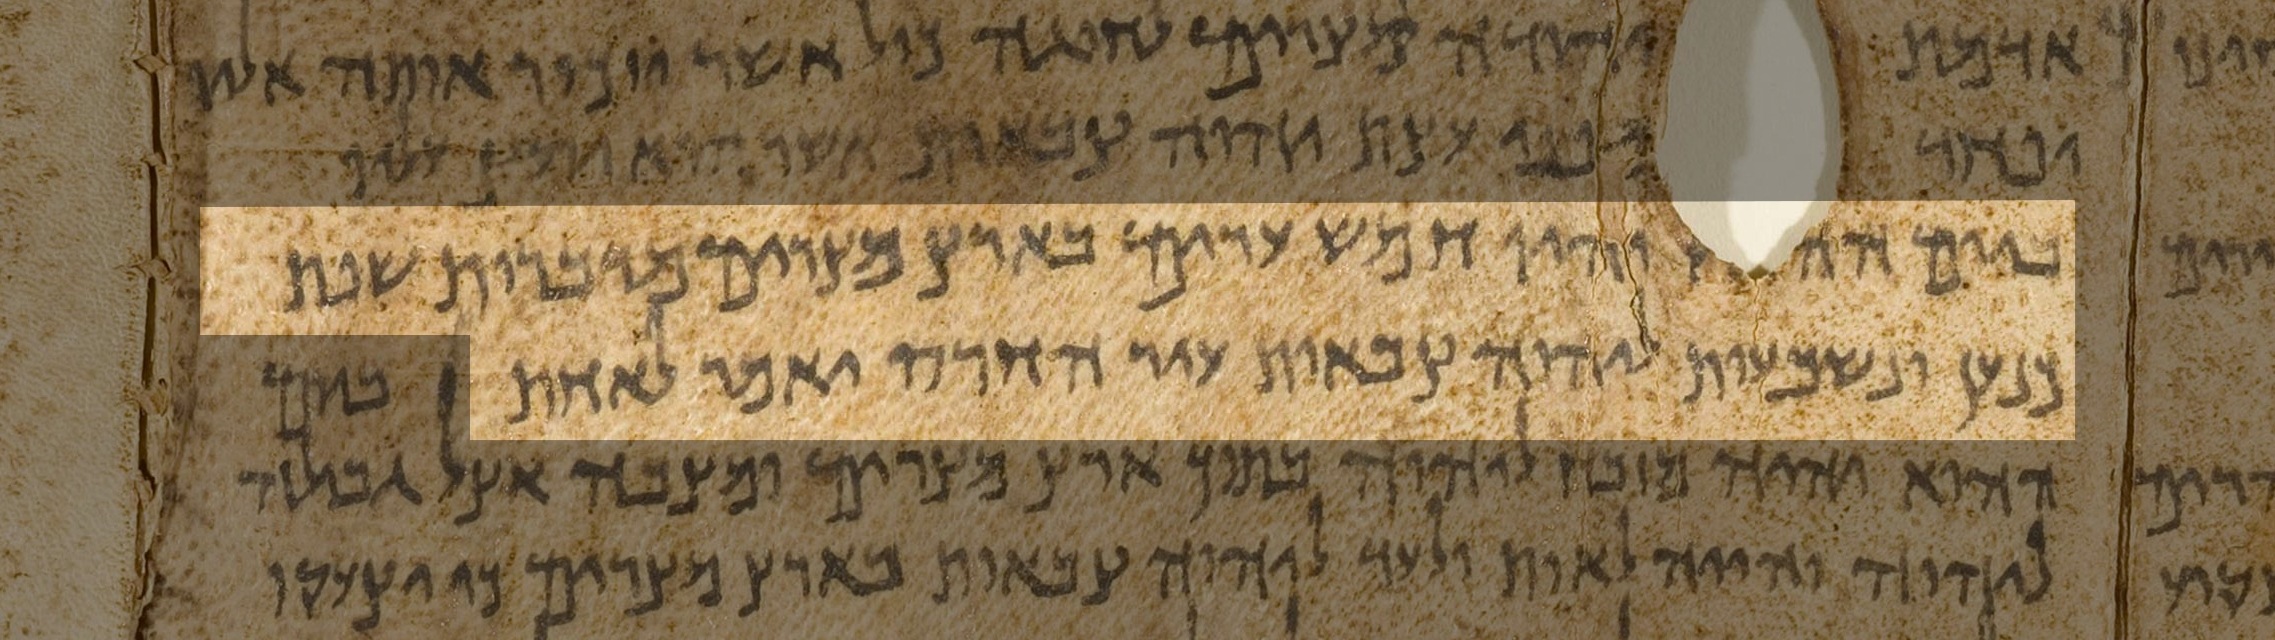 אדמת יהודה למצרים לחוגה כול אשר יזכיר אותה אליו
יפחד מפני עצת יהוה צבאות אשר הוא יועץ עליו
ביום ההוא יהיו חמש ערים בארץ מצרים מדברות שפת
כנען ונשבעות ליהוה צבאות עיר החרס יאמר לאחת ביום
ההוא יהיה מזבח ליהוה בתוך ארץ מצרים ומצבה אצל גבולה
ליהוה והיה לאות ולעד ליהוה צבאות בארץ מצרים כי יצעקו